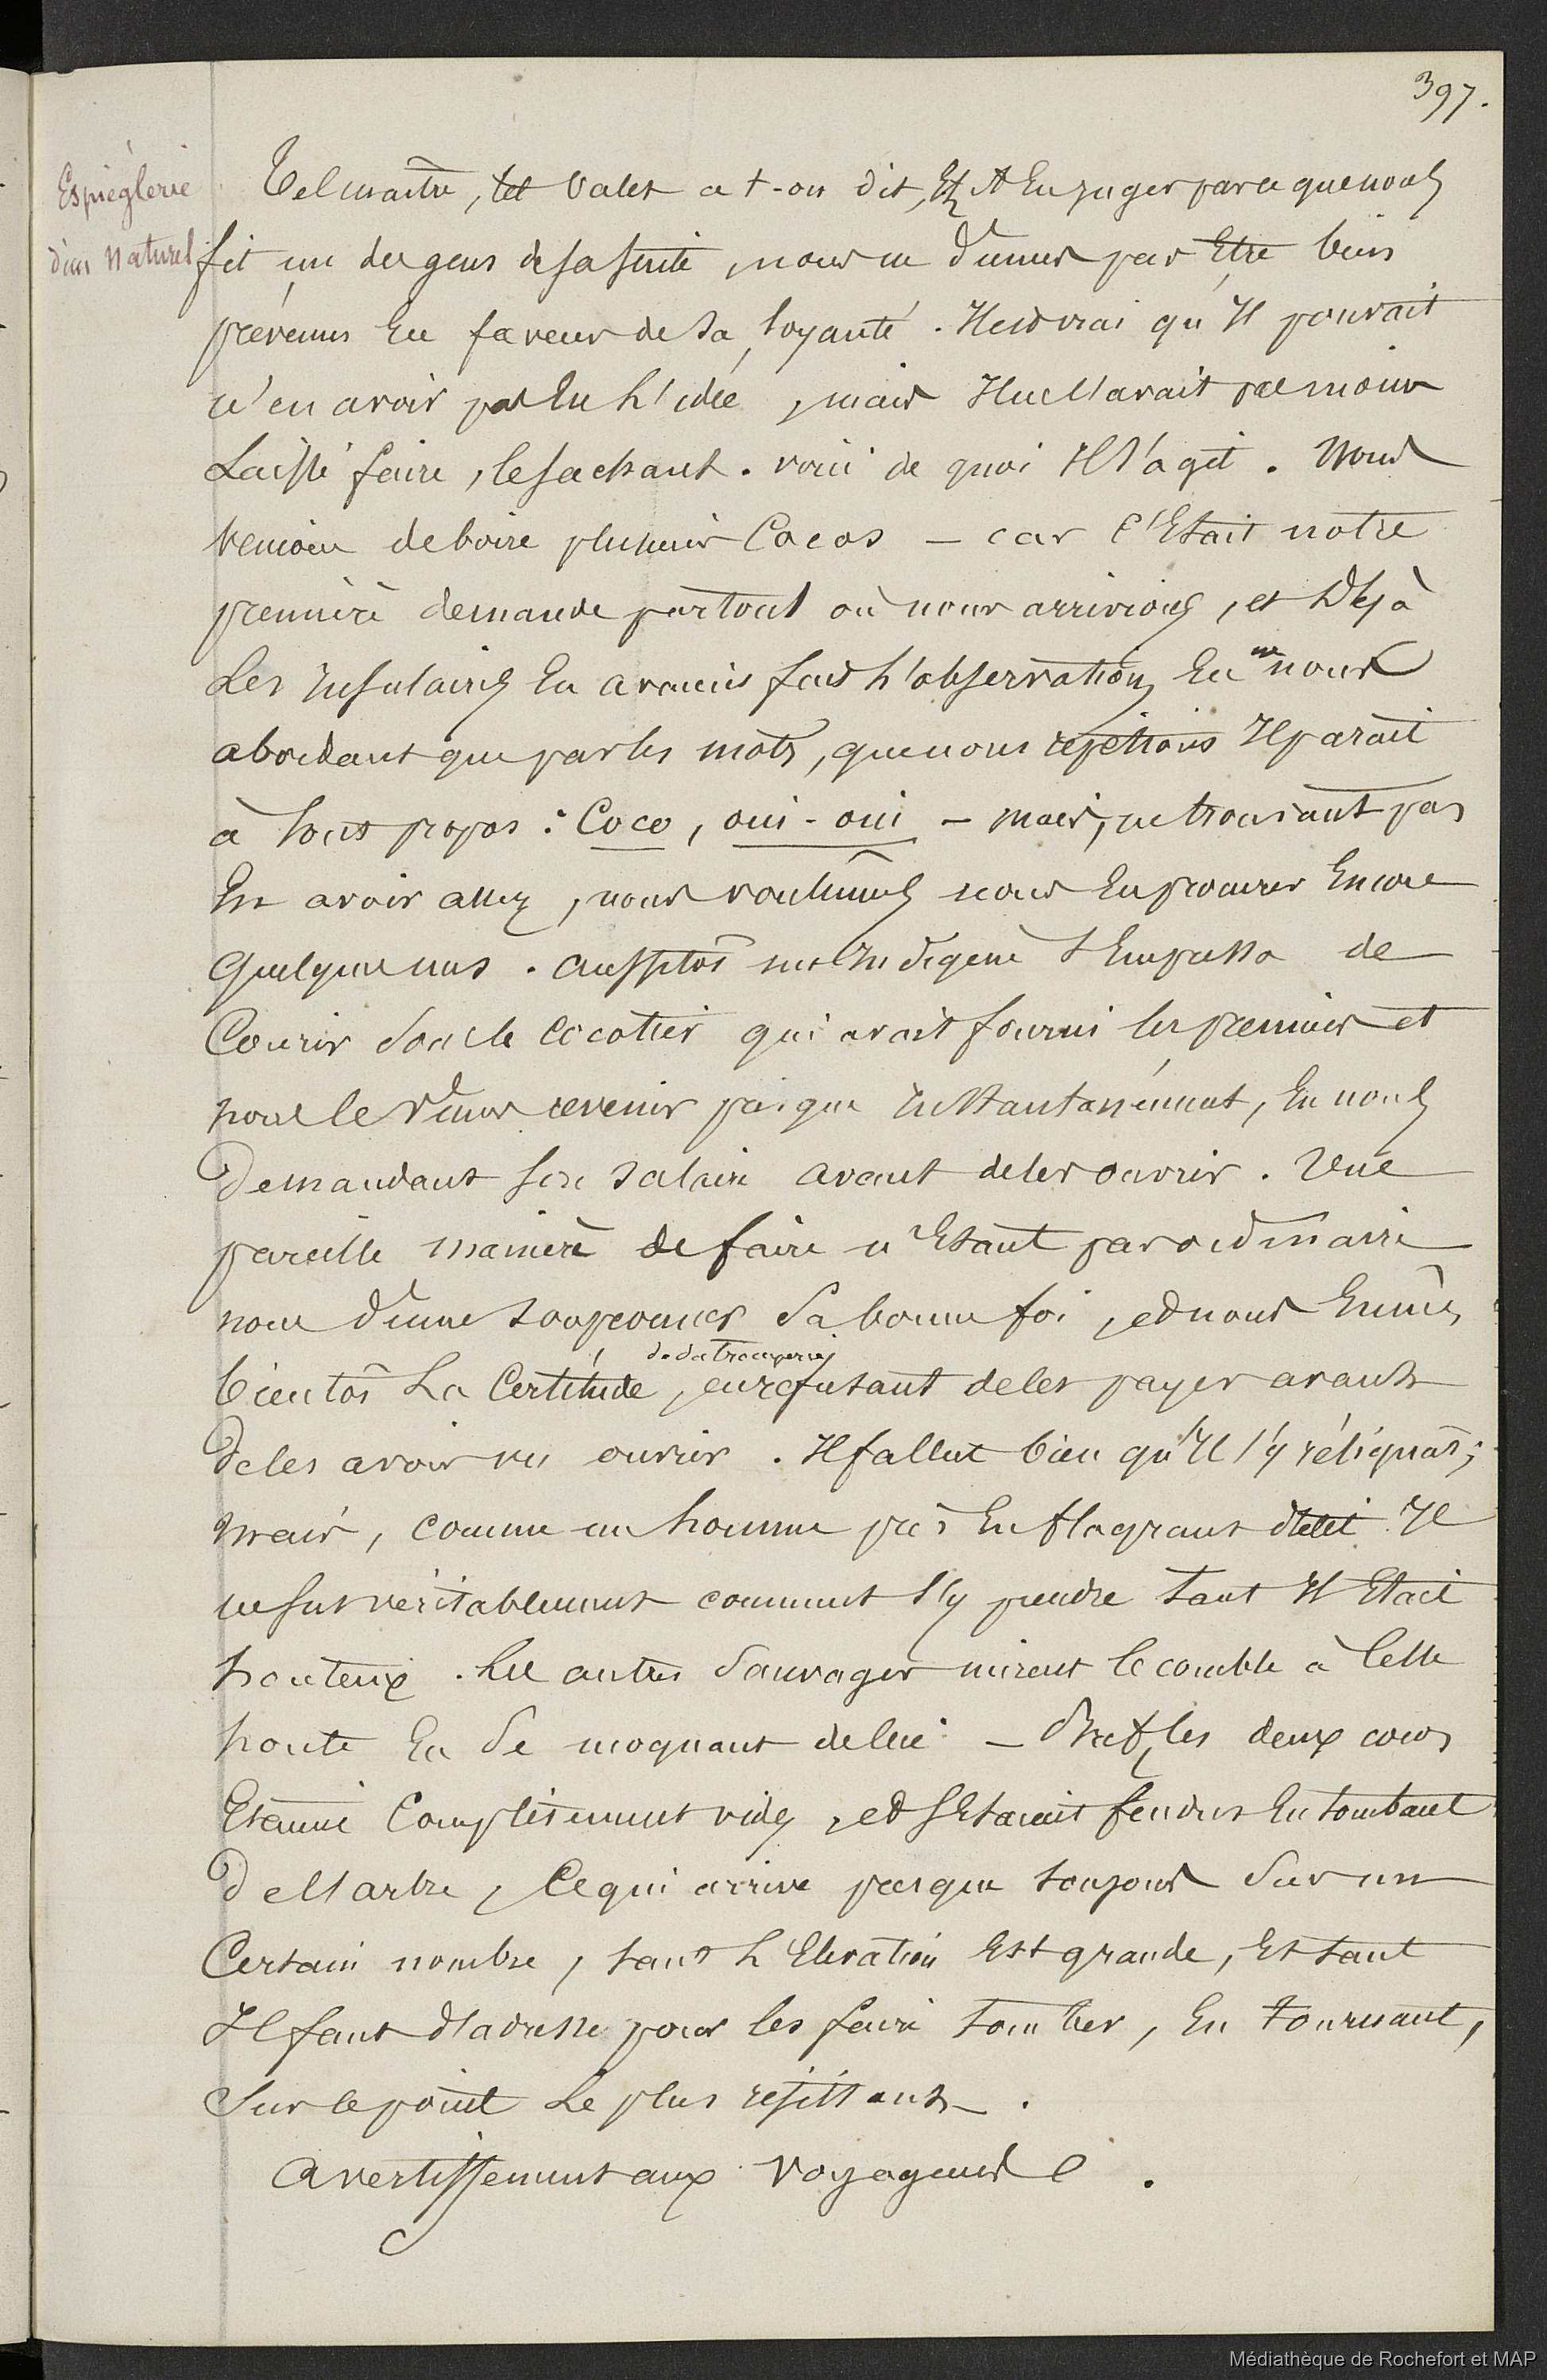 397.
Espièglerie
d'un Naturel
Tel maître, tel valet a t-on dit, Et A En juger par ce que nous
fit un des gens de sa suite, nous ne dûmes pas Etre bien
prévenus En faveur de sa loyauté. Il est vrai qu'Il pouvait
n'en avoir pas Eu L'idée, mais Il ne l'avait pas moins
Laissé faire, le sachant. voici de quoi Il s'agit. Nous
venions de boire plusieurs Cocos – car C'Etait notre
première demande partout où nous arrivions, et Déjà
Les Insulaires En avaient fait L'observation En ne nous
abordant que par les mots, que nous répétions Il parait
à tout propos : Coco, oui-oui – mais, ne trouvant pas
En avoir assez, nous voulûmes nous En procurer Encore
Quelques uns. Aussitôt un Indigène s'Empressa de
Courir sous le cocotier qui avait fourni les premiers et
nous le vîmes revenir presque Instantanément, En nous
Demandant son salaire avant de les ouvrir. Une
pareille manière de faire n'Etant pas ordinaire
nous dûmes soupçonner sa bonne foi, et nous Eûmes
de sa tromperie
bientôt La Certitude, en refusant de les payer avant
De les avoir vu ouvrir. Il fallut bien qu'Il s'y résignât ;
Mais, comme un homme pris En flagrant délit Il
ne sut véritablement comment s'y prendre tant Il Etait
honteux. Les autres Sauvages mirent le comble à Cette
honte En Se moquant de lui – Bref, les deux cocos
Etaient Complètement vides, et s'Etaient fendus En tombant
De l'arbre, Ce qui arrive presque toujours Sur un
Certain nombre, tant L'Elévation Est grande, Et tant
Il faut d'adresse pour les faire tomber, En tournant,
Sur le point Le plus résistant.
Avertissement aux Voyageurs.
Médiathèque de Rochefort et MAP